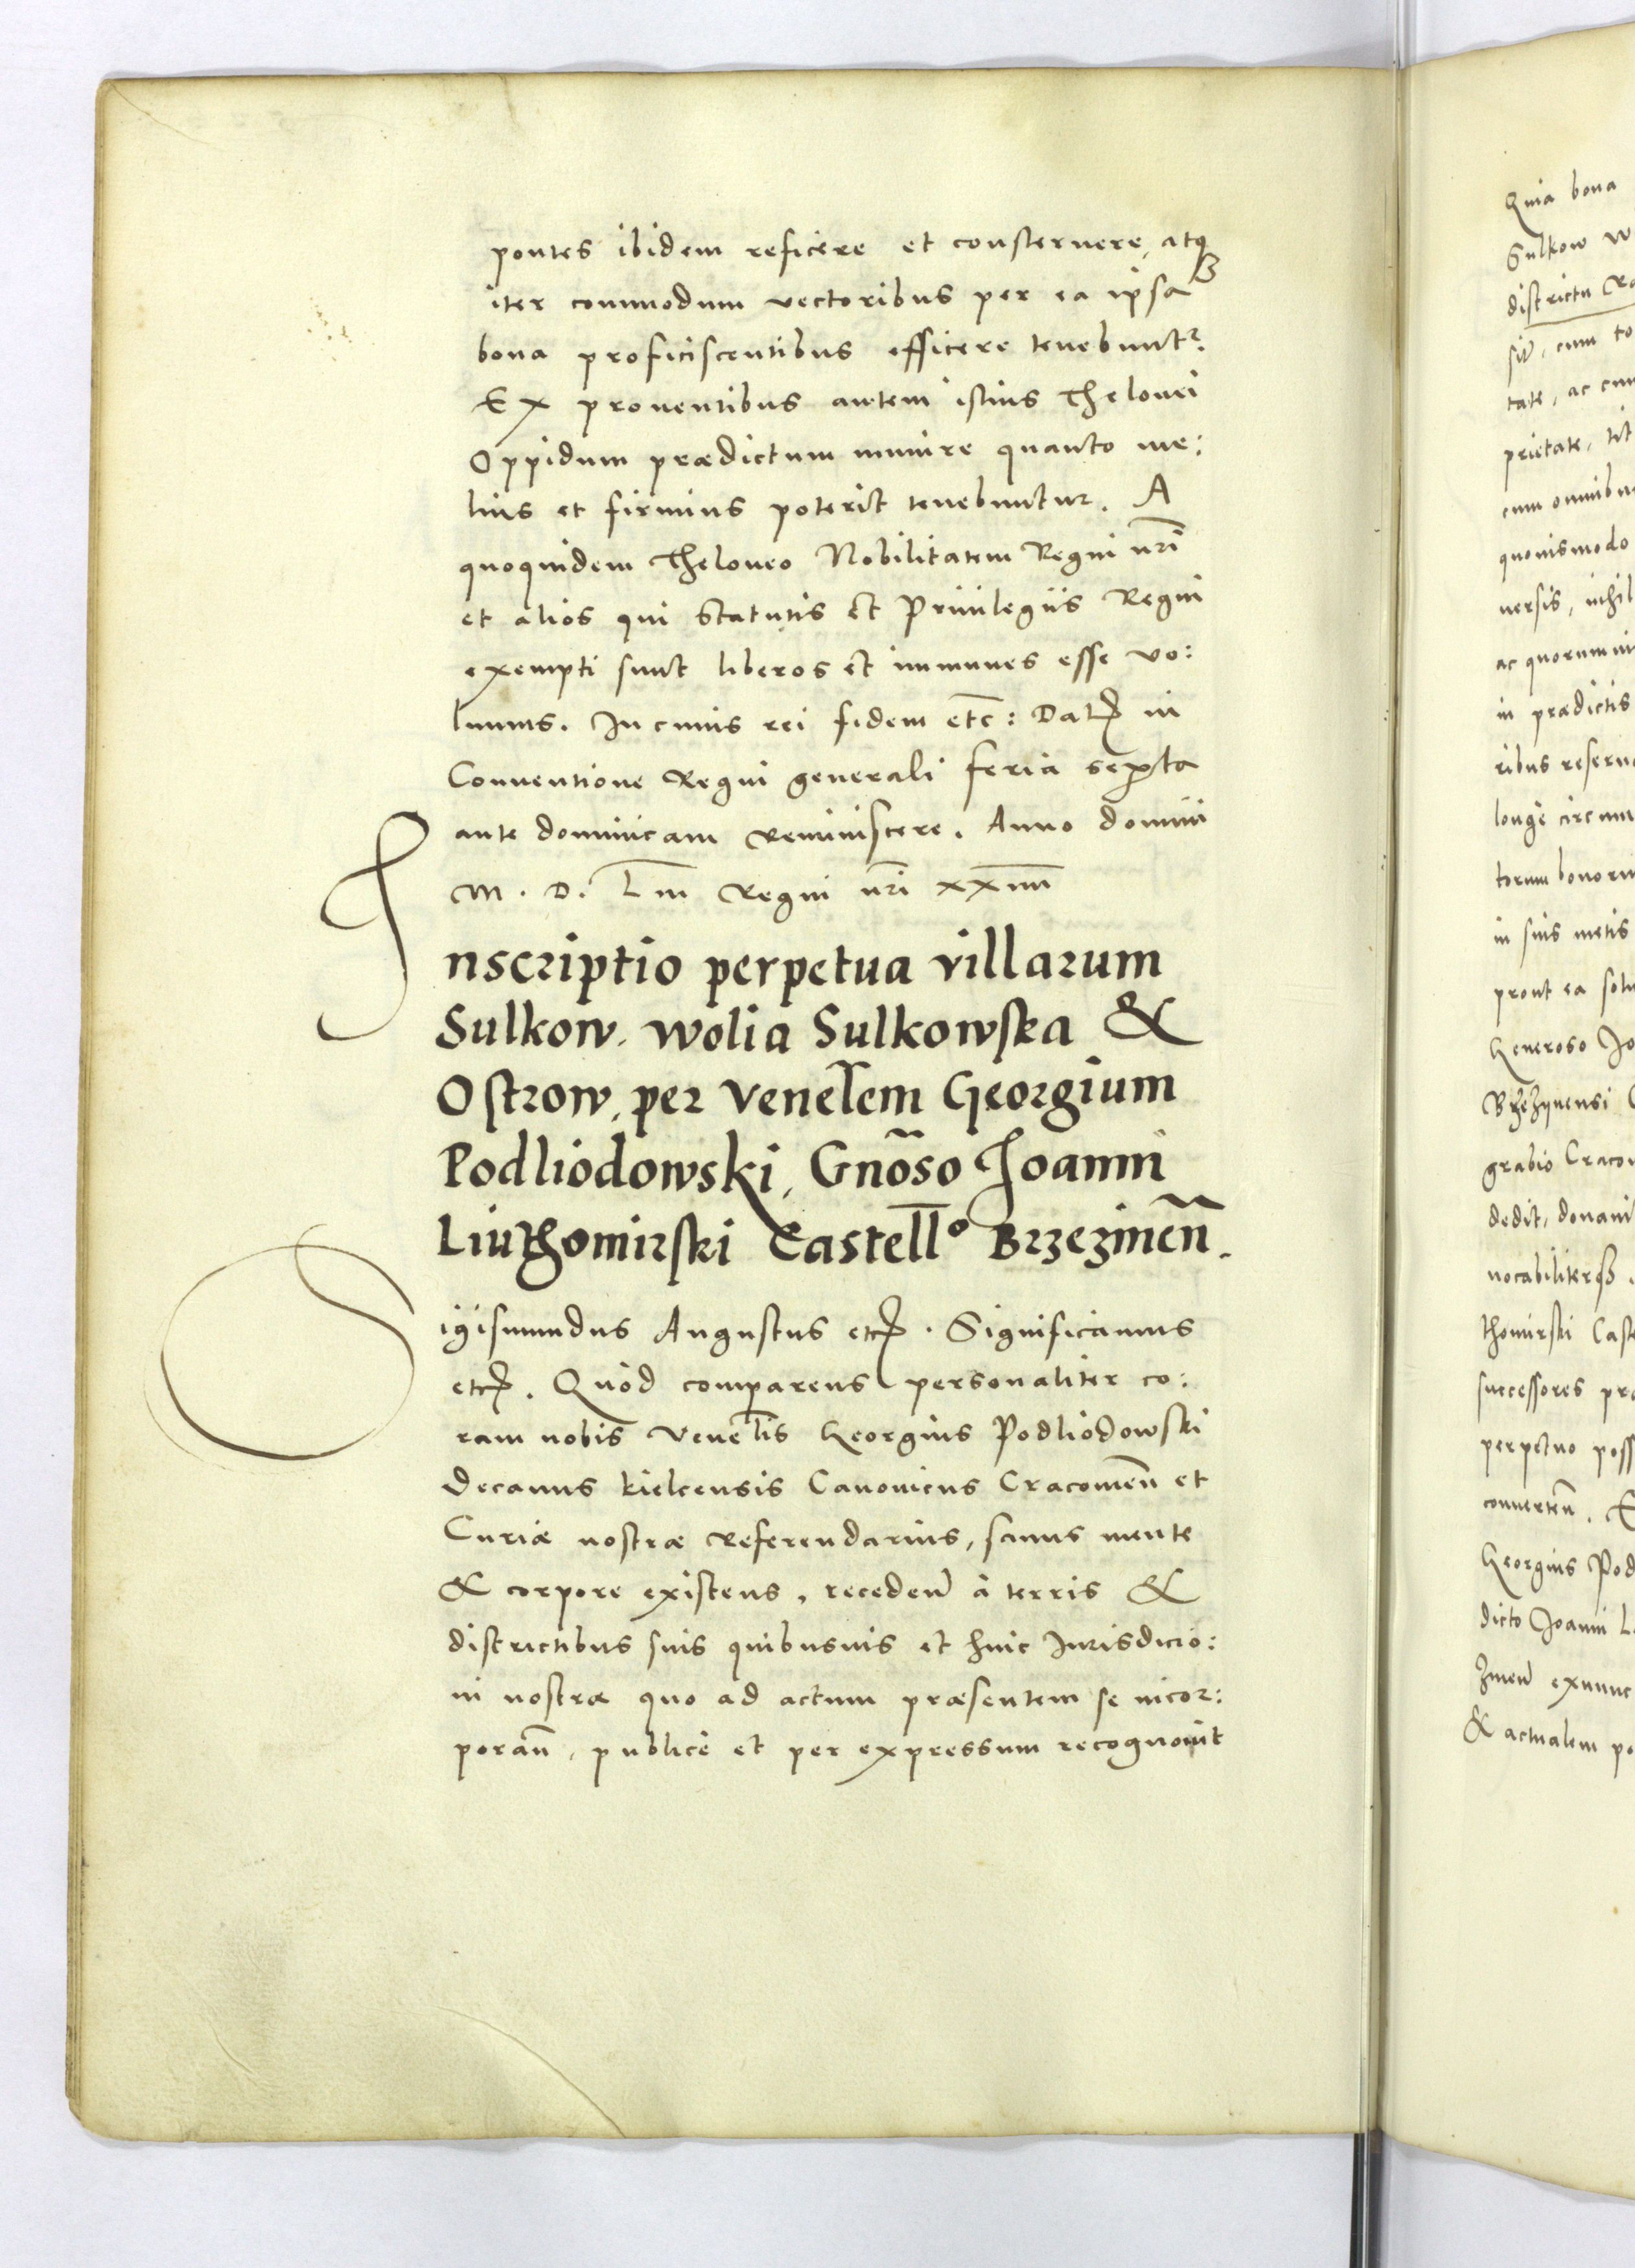 pontes ibidem reficere et consternere, atq3
iter commodum vectoribus per ea ipsa
bona proficiscentibus efficere tenebunt2.
Ex prouentibus autem istius Thelonei
Oppidum prædictum munire quanto me:
lius et firmius poterit tenebuntur. A
quoquidem Theloneo Nobilitatem Regni nr̃i
et alios qui Statutis et Priuilegiis Regni
exempti sunt liberos et immunes esse vo:
lumus. In cuius rei fidem etc̃: Dat in
Conuentione Regni generali feria sexta
ante dominicam Reminiscere. Anno domini
M. D. Liii Regni nr̃i xxiiii
Inscriptio perpetua villarum
Sulkow. wolia Sulkowska &
Ostrow, per Venelem Georgium
Podliodowski, Gnõso Joanni
Liuthomirski Castellº Brzezineñ.
Sigismundus Augustus etc. Significamus
etc. Quòd comparens personaliter co:
ram nobis Venelis Georgius Podliodowski
Decanus kielcensis Canonicus Cracouieñ et
Curiæ nostræ Referendarius, sanus mente
& corpore existens, recedeñ à terris &
districtibus suis quibusuis et huic Jurisdicio:
ni nostræ quo ad actum præsentem se incor:
porañ, publicè et per expressum recognouit
Quia bona
Sulkow w
districtu Ra
sit̃, cum to
tate, ac cum
prietate, tit
cum omnibus
quouismodo
uersis, nihil
ac quorumui
in prædictis
ribus reserua
longè circum
torum bonoru
in suis metis
prout ea solu
Generoso Jo
Brzezinensi C
grabio Craco
dedit, donaui
uocabiliterq3.
thomirski Cast
successores præ
perpetuo poss
conuerteñ. E
Georgius Pod
dicto Joanni L
zineñ exnunc
& actualem po